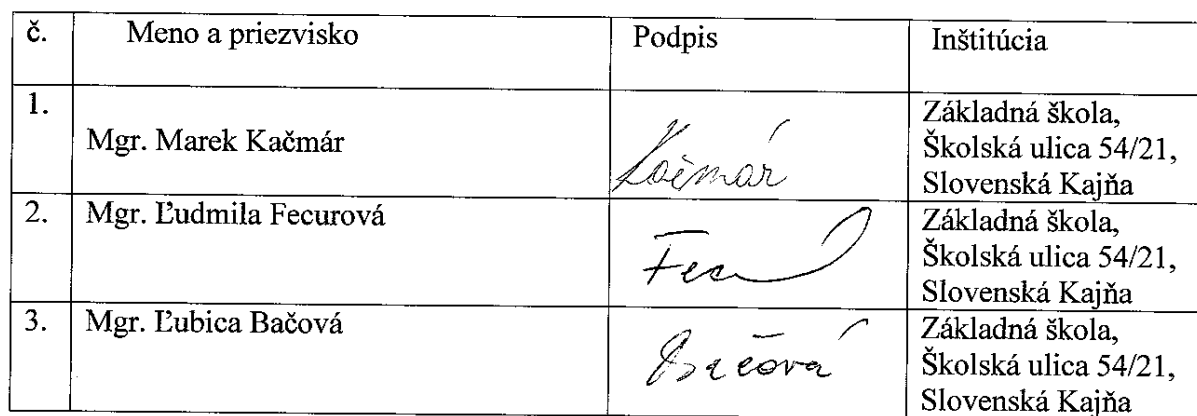 č. Meno a priezvisko Podpis Inštitúcia
1. Mgr. Marek Kačmár Kačmár Základná škola,
Školská ulica 54/21,
Slovenská Kajňa
2. Mgr. Ľudmila Fecurová Fec Základná škola,
Školská ulica 54/21,
Slovenská Kajňa
3. Mgr. Ľubica Bačová Bačová Základná škola,
Školská ulica 54/21,
Slovenská Kajňa